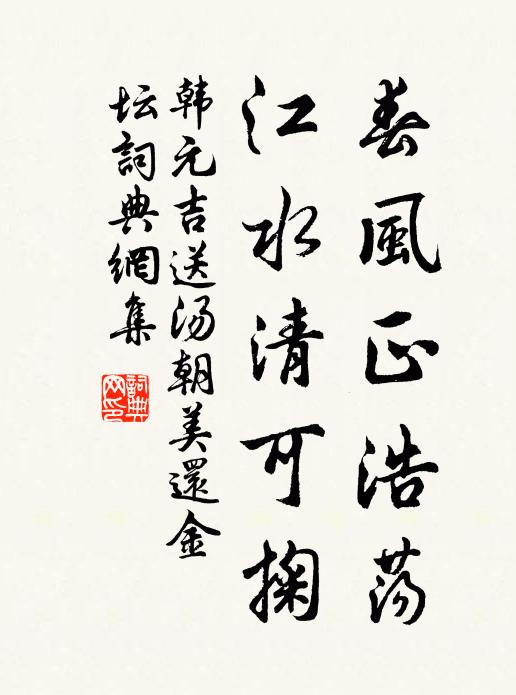 春風正浩蕩
江水清可掬
韩元吉送汤朝美還金
坛詞典網集
詞典网印